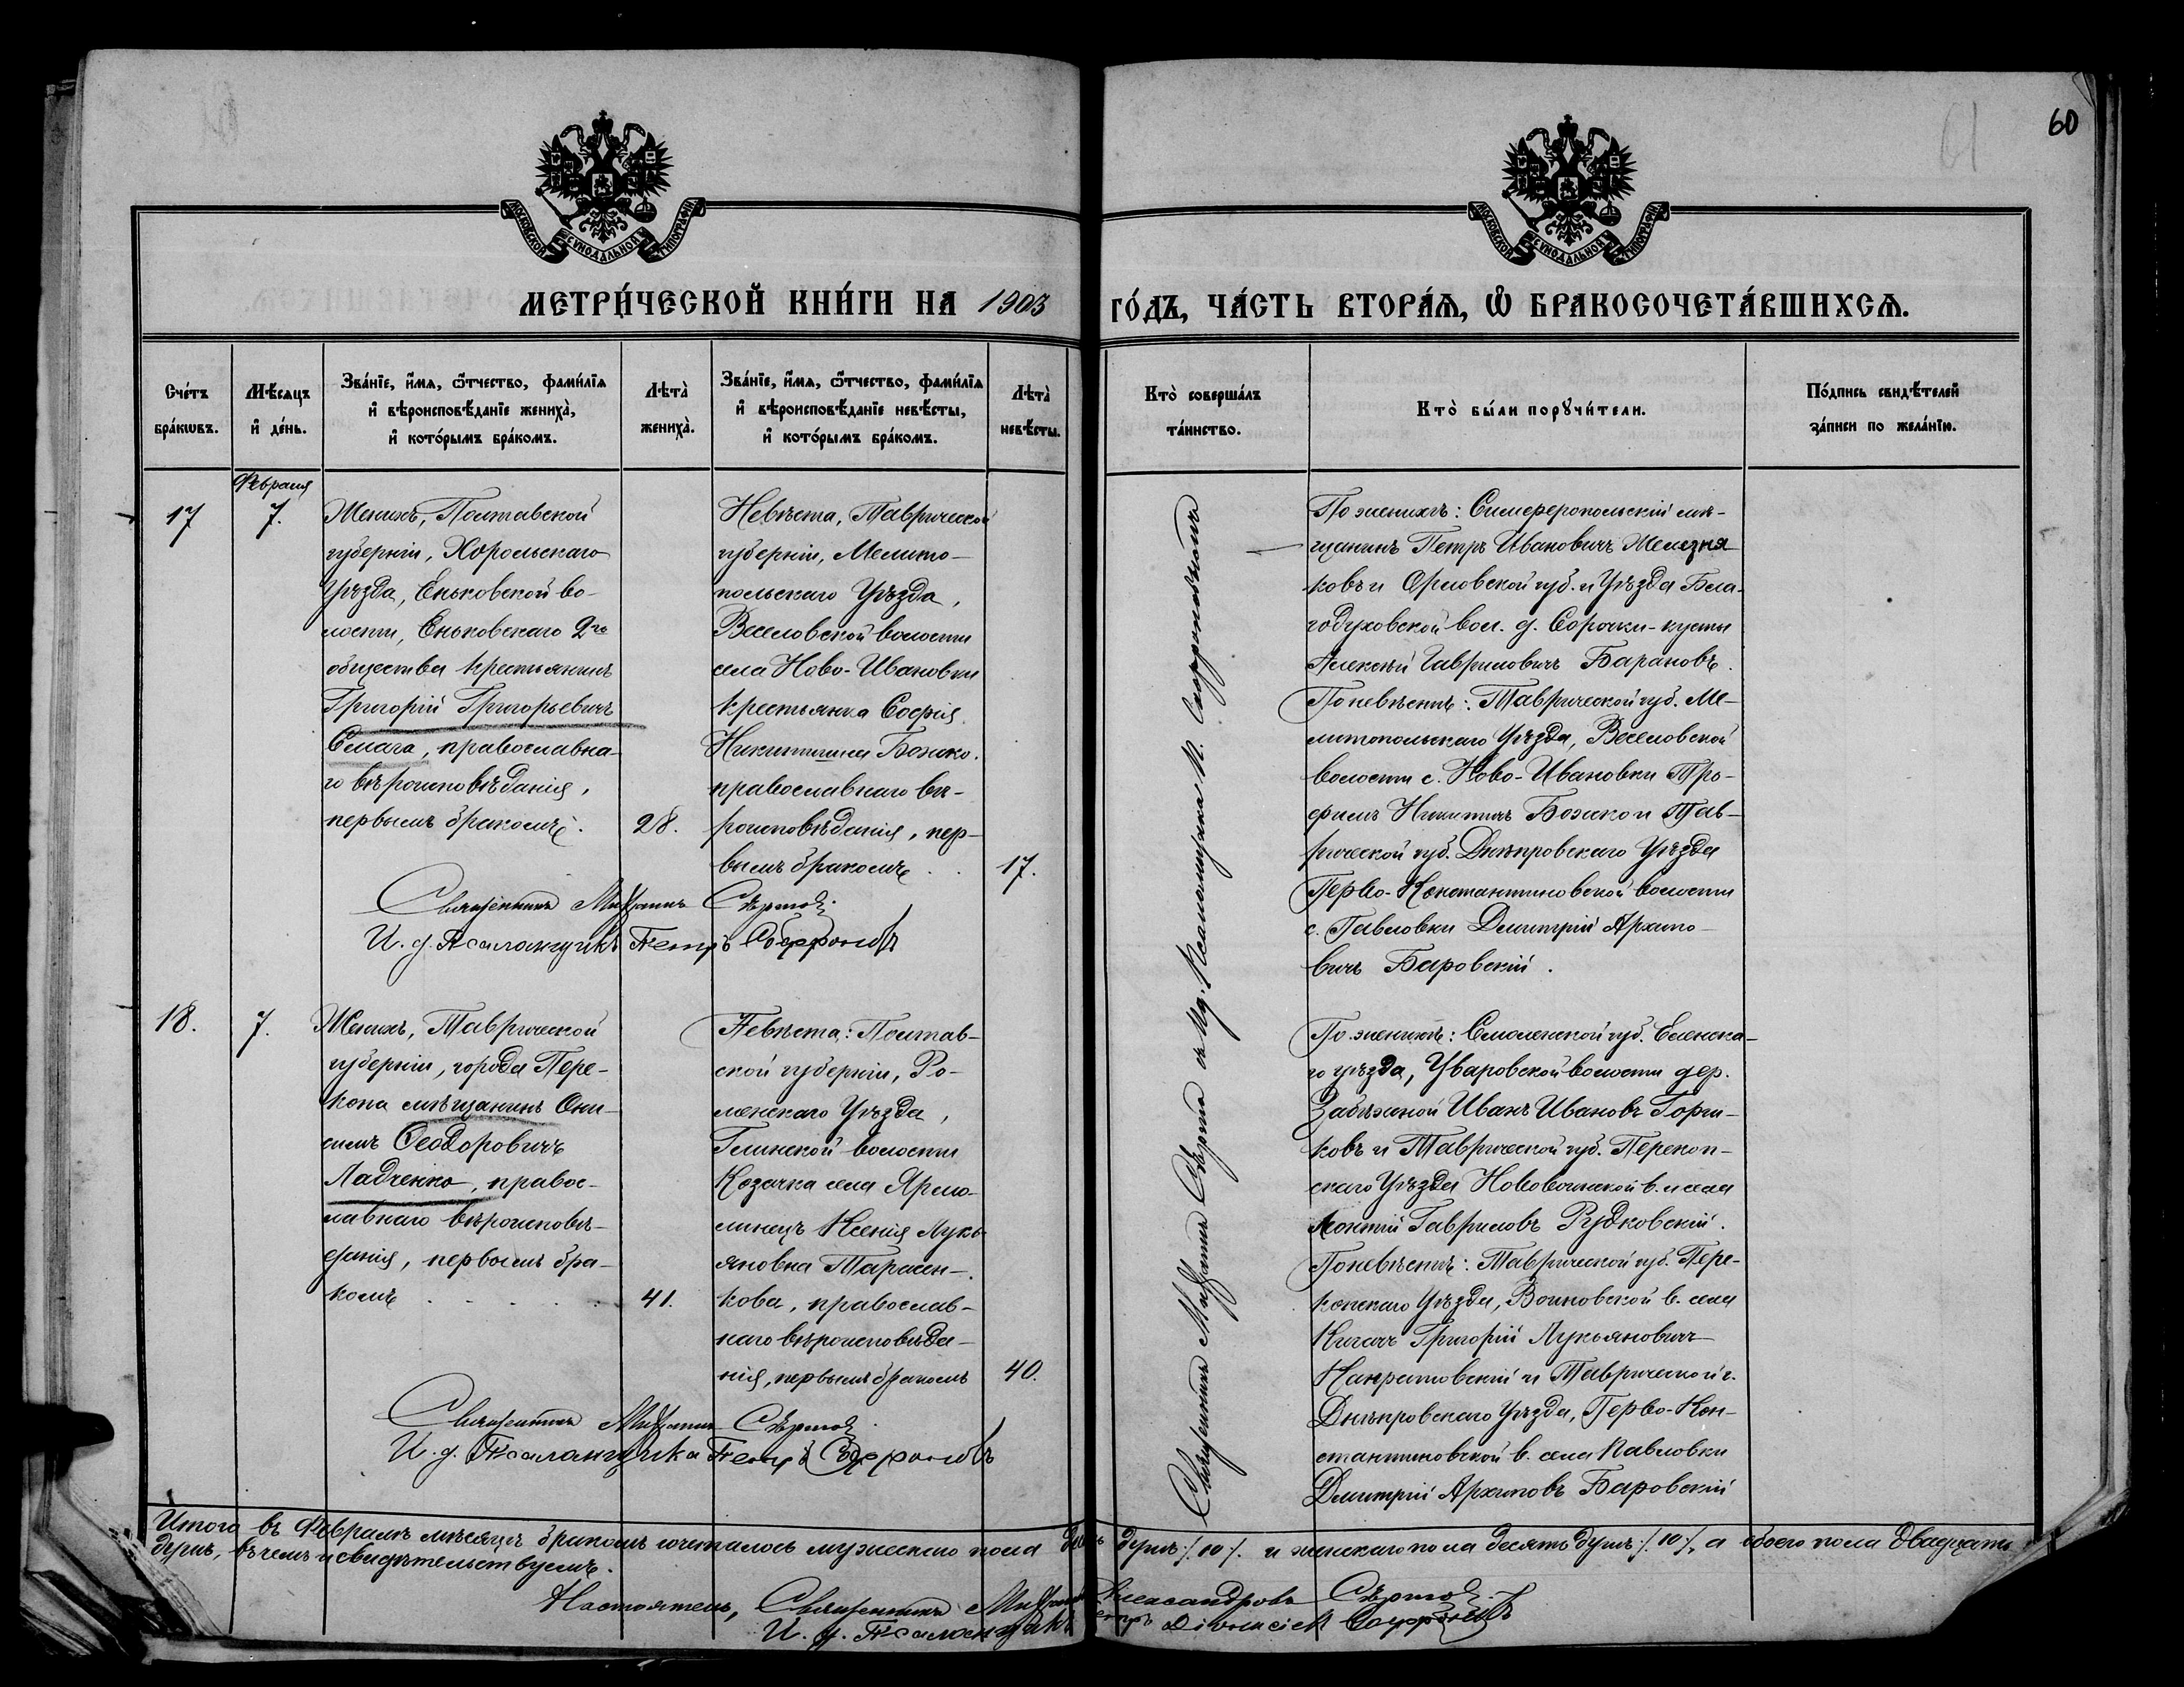 60
61
МОСКОВСКОЙ СѴНОДАЛЬНОЙ ТИПОГРАФІИ
МОСКОВСКОЙ СѴНОДАЛЬНОЙ ТИПОГРАФІИ
МЕТРИ́ЧЕСКОЙ КНИ́ГИ НА 1903
ГО́ДЪ, ЧА́СТЬ ВТОРА́Ѧ, Ѡ҆ БРАКОСОЧЕТА́ВШИХСѦ.
Сче́тъ
бра́кѡвъ.
Мѣ́сѧцъ
и҆ де́нь.
Зва́нїе, и҆́мѧ, ѻ҆́тчество, фами́лїѧ
и҆ вѣроисповѣ́данїе жениха̀,
и҆ кото́рымъ бра́комъ.
Лѣта̀
жениха̀.
Зва́нїе, и҆́мѧ, ѻ҆́тчество, фами́лїѧ
и҆ вѣроисповѣ́данїе невѣ́сты,
и҆ кото́рымъ бра́комъ.
Лѣта̀
невѣ́сты.
Кто̀ соверша́лъ
та́инство.
Кто̀ бы́ли порꙋчи́тели.
По́дпись свидѣ́телей
за́писи по жела́нїю.
Февраля
17
7.
Женихъ, Полтавской
губерніи, Хорольскаго
Уѣзда, Еньковской во-
лости, Еньковскаго 2го
общества крестьянинъ
Григорій Григорьевичъ
Семага, православна-
го вѣроисповѣданія,
первымъ бракомъ.
28.
Невѣста, Таврической
губерніи, Мелито-
польскаго Уѣзда,
Веселовской волости
села Ново-Ивановки
крестьянка Софія
Никитишна Божко.
православнаго вѣ-
роисповѣданія, пер-
вымъ бракомъ
17.
Священникъ Митрофанъ Свѣтлов
И. д. Псаломщикъ Петръ Софроновъ
По женихѣ: Симферопольскій мѣ-
щанинъ Петръ Ивановичъ Железня-
ковъ и Орловской губ. и Уѣзда Бла-
годуховской вол. д. Сорочьи-кусты
Алексѣй Гавриловичъ Барановъ.
По невѣстѣ: Таврической губ. Ме-
литопольскаго Уѣзда, Веселовской
волости с. Ново-Ивановки Тро-
фимъ Никитичъ Божко и Тав-
рической губ. Днѣпровскаго Уѣзда
Перво-Константиновской волости
с. Павловки Димитрій Архипо-
вичъ Баровскій.
18.
7.
Женихъ, Таврической
губерніи, города Пере-
копа мѣщанинъ Они-
симъ Ѳеодоровичъ
Ладченко, правос-
лавнаго вѣроисповѣ-
данія, первымъ бра-
комъ
41.
Невѣста: Полтав-
ской губерніи, Ро-
менскаго Уѣзда,
Глинской волости
Козачка села Ярмо-
линецъ Ксенія Лукь-
яновна Тарасен-
кова, православ-
наго вѣроисповѣда-
нія, первымъ бракомъ
40.
Священникъ Митрофанъ Свѣтлов
И. д. Псаломщика Петръ Софроновъ
По женихѣ: Смоленской губ. Еленска-
го уѣзда, Уваровской волости дер.
Иванъ Ивановъ Горш-
ковъ и Таврической губ. Перекоп-
скаго Уѣзда в. и села
Леонтій Гавриловъ Рудковскій.
По невѣстѣ: Таврической губ. Пере-
копскаго Уѣзда, Воиновской в. села
Григорій Лукьяновичъ
и Таврической г.
Днѣпровскаго Уѣзда, Перво-Кон-
стантиновской в. села Павловки
Димитрій Архиповъ Баровскій
Итого въ Февралѣ мѣсяцѣ бракомъ сочеталось мужескаго пола душъ ./. 10 ./. и женскаго пола десять душъ ./. 10 ./., а обоего пола двадцать
душъ, въ чемъ и свидѣтельствуемъ.
Настоятель, Священникъ Александровъ
И. д. Псаломщикъ Софроновъ